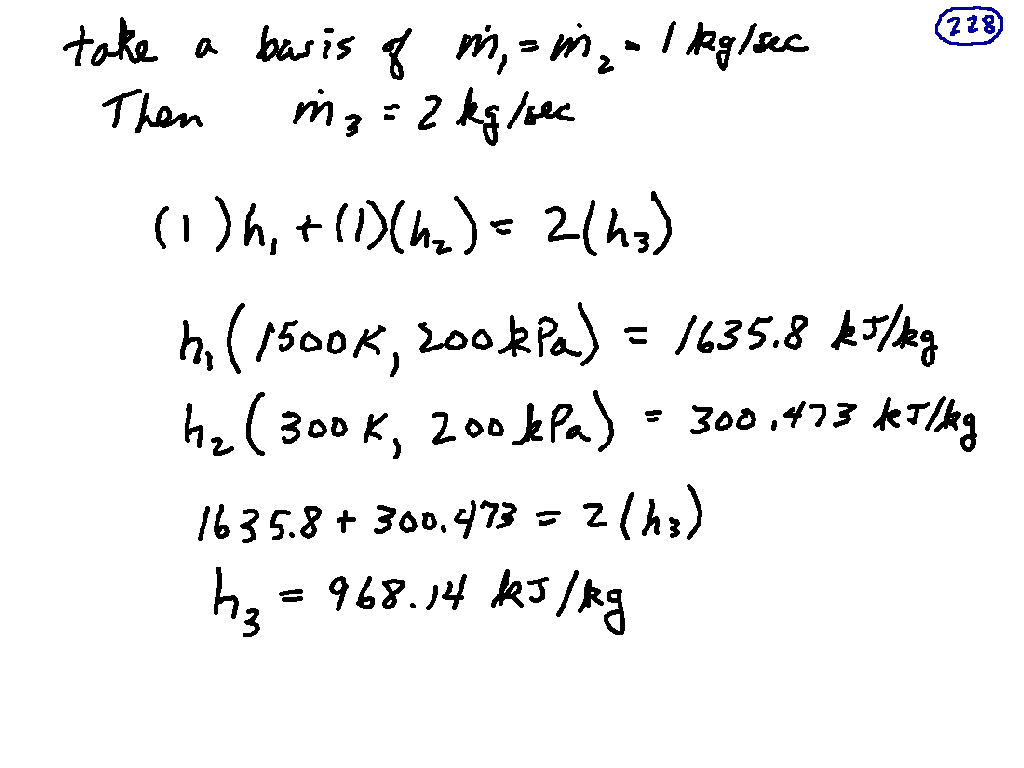 take a basis of ṁ₁ = ṁ₂ = 1 kg/sec
228
Then ṁ₃ = 2 kg/sec
(1)h₁ + (1)(h₂) = 2(h₃)
h₁(1500K, 200kPa) = 1635.8 kJ/kg
h₂(300K, 200kPa) = 300.473 kJ/kg
1635.8 + 300.473 = 2(h₃)
h₃ = 968.14 kJ/kg